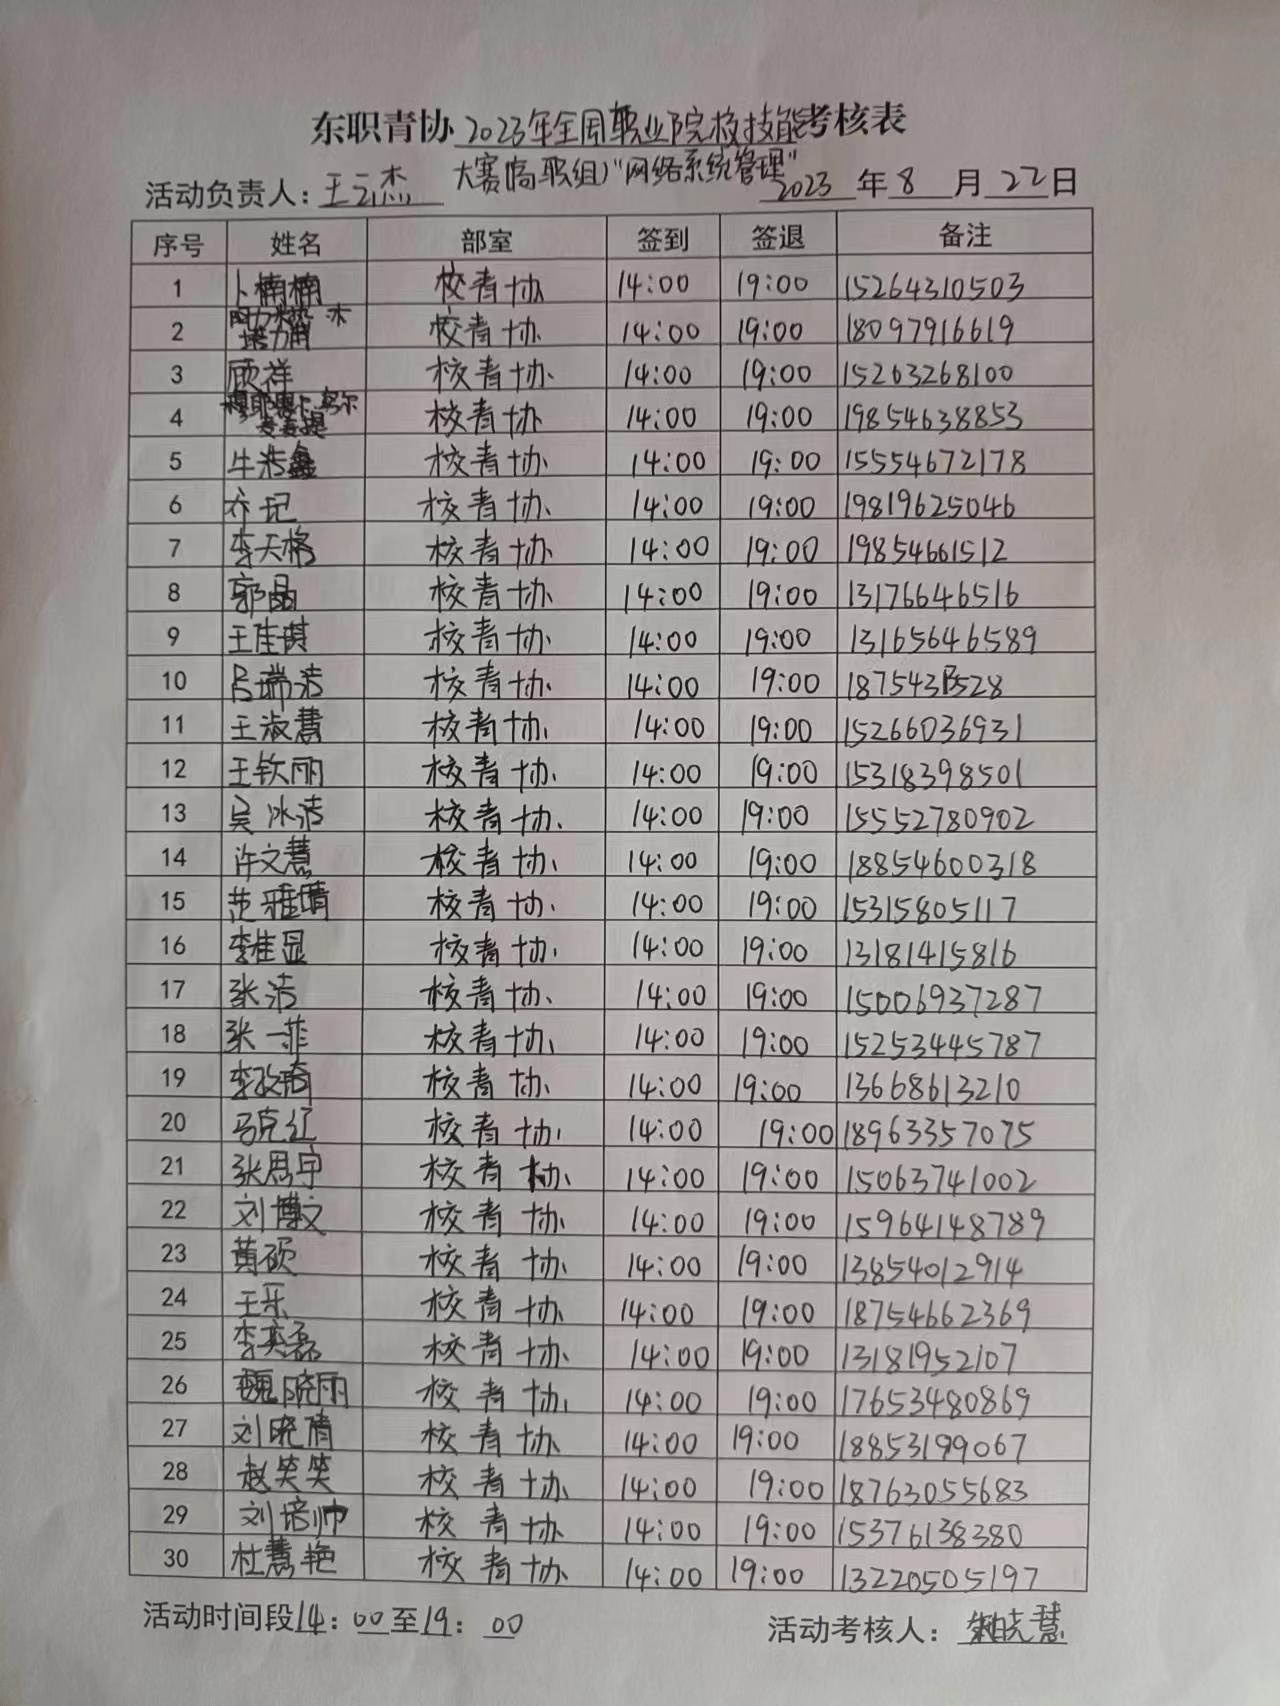 东职青协2023年全国职业院校技能考核表
大赛(高职组)"网络系统管理"
活动负责人：王云杰 2023 年 8 月 22 日
序号 姓名 部室 签到 签退 备注
1 卜楠楠 校青协 14:00 19:00 15264310503
2 校青协 14:00 19:00 18097916619
3 顾祥 校青协 14:00 19:00 15263268100
4 校青协 14:00 19:00 19854638853
5 牛浩鑫 校青协 14:00 19:00 15554672178
6 乔玘 校青协 14:00 19:00 19819625046
7 李天格 校青协 14:00 19:00 19854661512
8 郭晶 校青协 14:00 19:00 13176646516
9 王佳琪 校青协 14:00 19:00 13165646589
10 吕瑞洁 校青协 14:00 19:00
11 王淑慧 校青协 14:00 19:00 15266036931
12 王钦丽 校青协 14:00 19:00 15318398501
13 吴冰洁 校青协 14:00 19:00 15552780902
14 许文慧 校青协 14:00 19:00 18854600318
15 范雅晴 校青协 14:00 19:00 15315805117
16 李佳显 校青协 14:00 19:00 13181415816
17 张洁 校青协 14:00 19:00 15006937287
18 张一菲 校青协 14:00 19:00 15253445787
19 校青协 14:00 19:00 13668613210
20 马克红 校青协 14:00 19:00 18963357075
21 张思宇 校青协 14:00 19:00 15063741002
22 刘博文 校青协 14:00 19:00 15964148789
23 黄硕 校青协 14:00 19:00 13854012914
24 王乐 校青协 14:00 19:00 18754662369
25 李奕磊 校青协 14:00 19:00 13181952107
26 魏晓雨 校青协 14:00 19:00 17653480869
27 刘晓倩 校青协 14:00 19:00 18853199067
28 赵笑笑 校青协 14:00 19:00 18763055683
29 刘培帅 校青协 14:00 19:00 15376138380
30 杜慧艳 校青协 14:00 19:00 13220505197
活动时间段14：00至19：00 活动考核人：